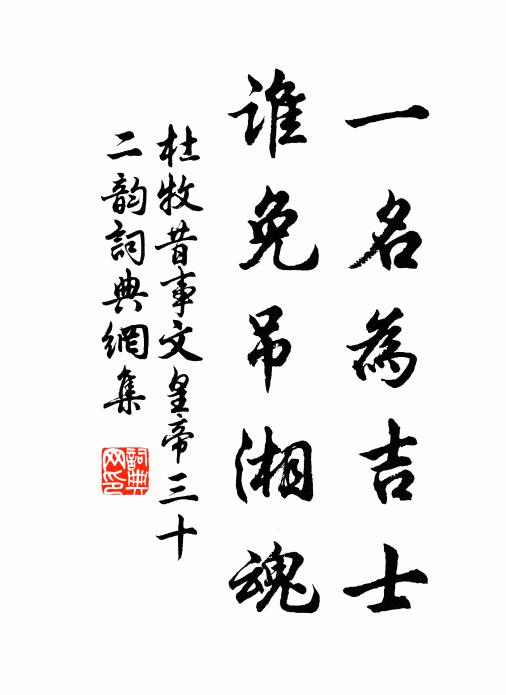 一名為吉士
誰免吊湘魂
杜牧昔事文皇帝三十
二韵詞典網集
詞典网印